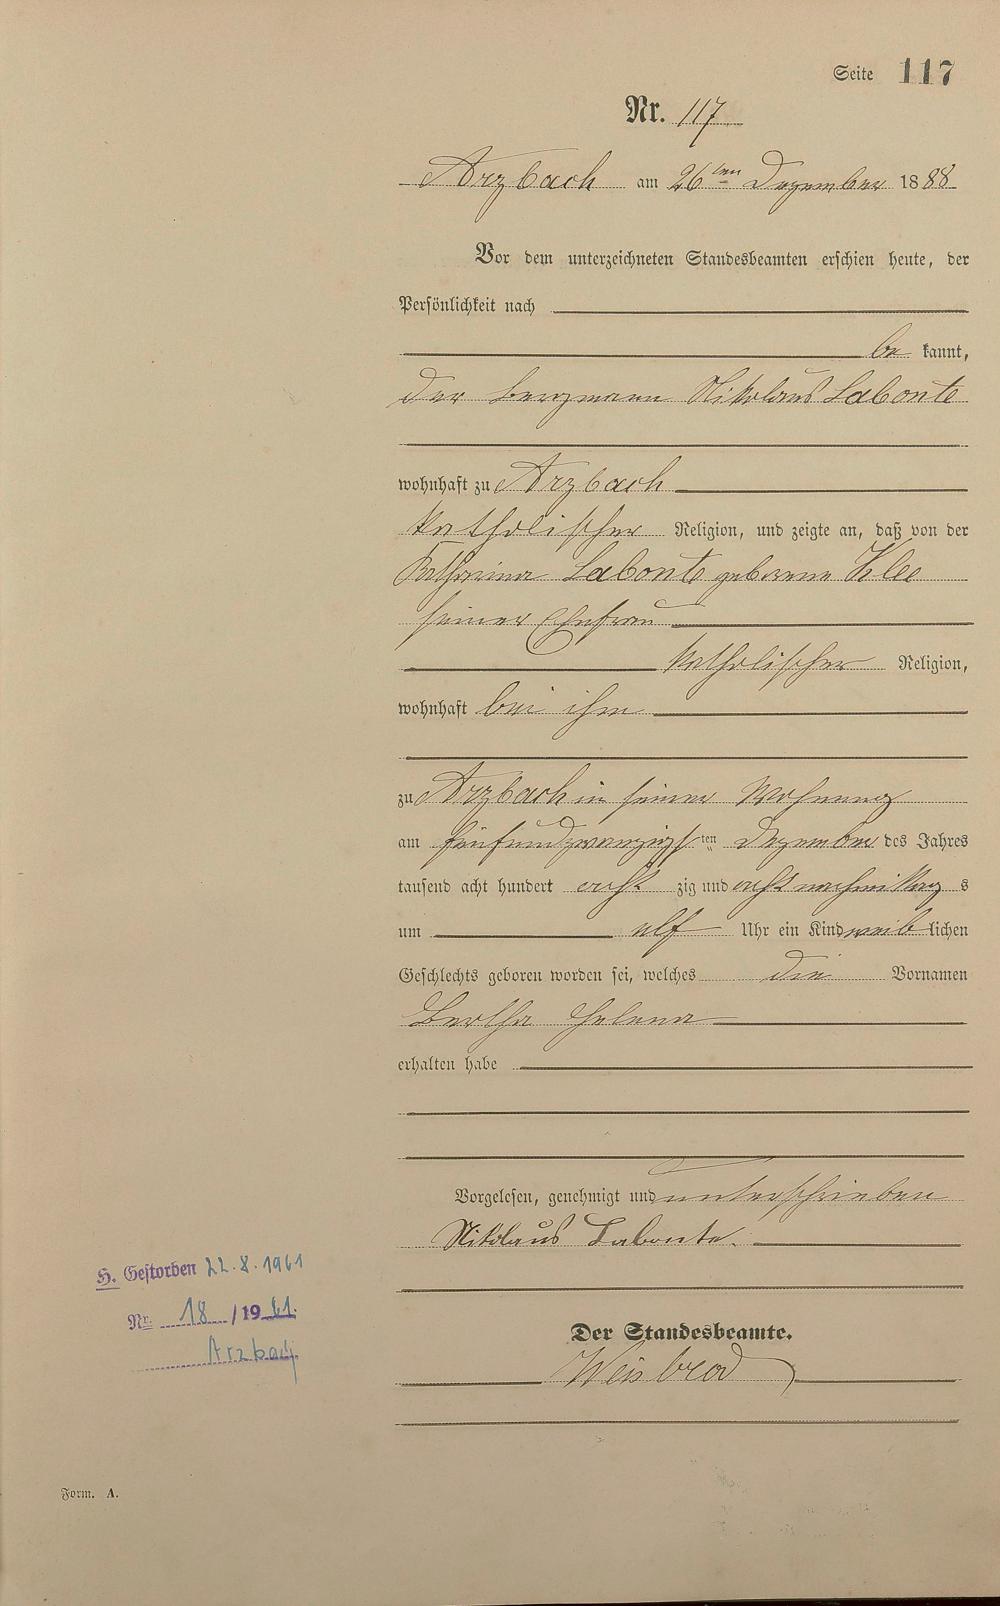 Seite 117
Nr. 117
Arzbach am 26ten Dezember 1888
Vor dem unterzeichneten Standesbeamten erschien heute, der
Persönlichkeit nach
be kannt,
der Bergmann Nikolaus Labonte
wohnhaft zu Arzbach
katholischer Religion, und zeigte an, daß von der
Katharina Labonte geborene Klee
seiner Ehefrau
katholischer Religion,
wohnhaft bei ihm
zu Arzbach in seiner Wohnung
am fünfundzwanzigsten Dezember des Jahres
tausend acht hundert acht zig und acht nachmittags
um elf Uhr ein Kind weiblichen
Geschlechts geboren worden sei, welches die Vornamen
Bertha Helena
erhalten habe
Vorgelesen, genehmigt und unterschrieben
Nikolaus Labonte.
H. Gestorben 22.8.1961
Nr. 18 /1961.
Arzbach
Der Standesbeamte.
Weisbrod
Form. A.